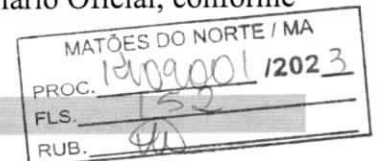 ário Oficial, conforme
MATÕES DO NORTE / MA
PROC. 1409001 /2023
FLS. 152
RUB.